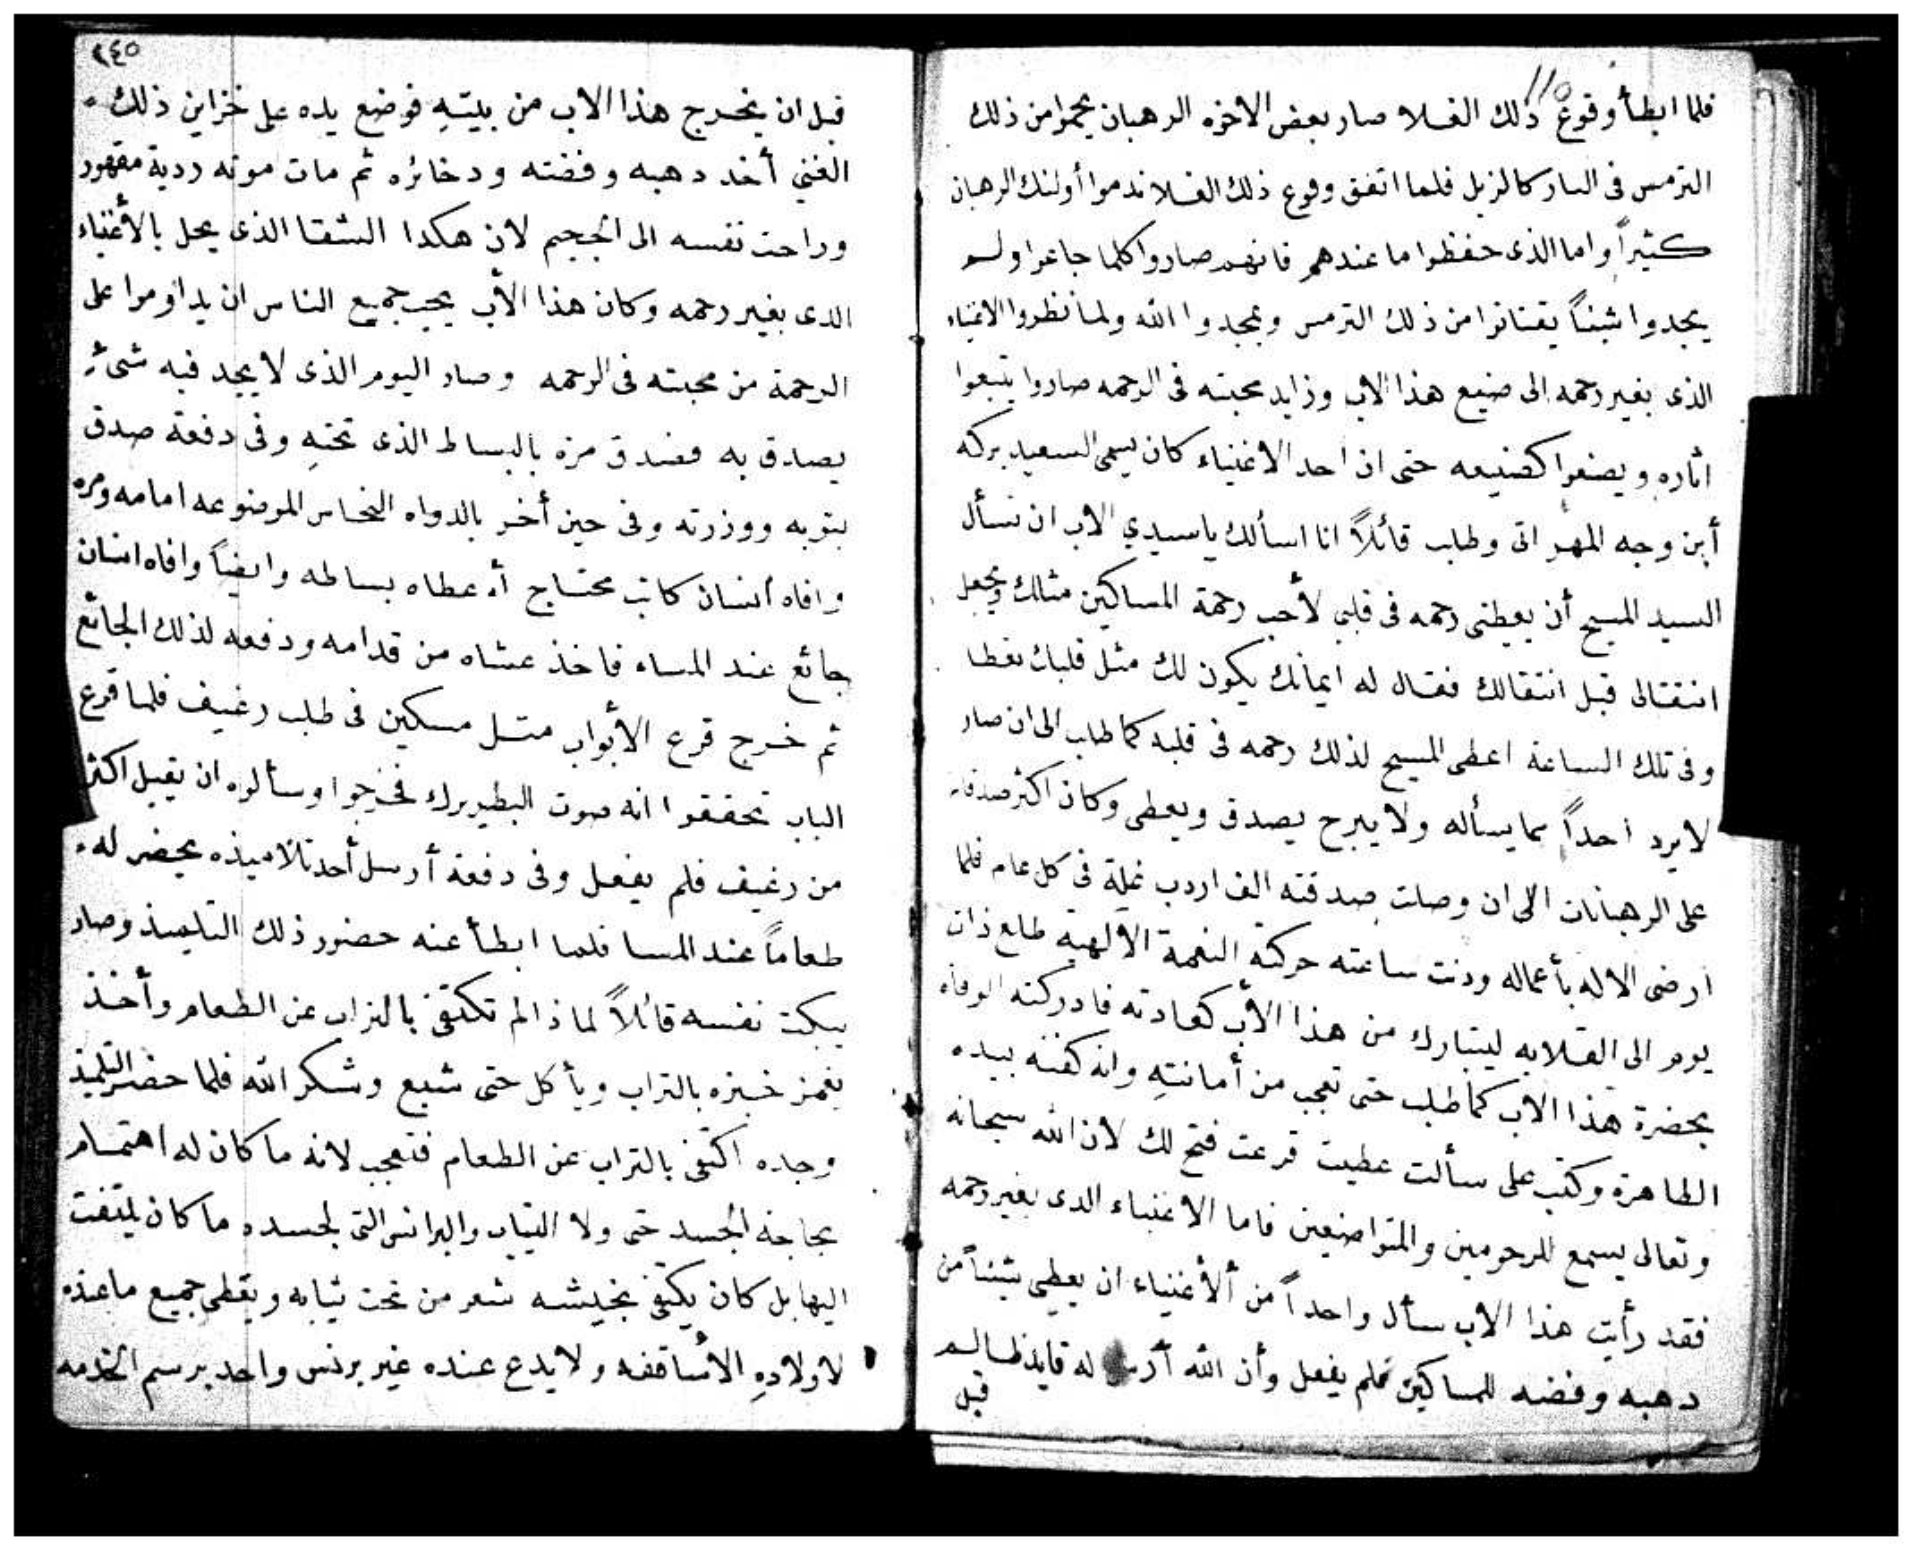 ١١٥
فلما ابطأ وقوع ذلك الغلا صار بعض الاخوه الرهبان يحموا من ذلك
الترمس فى النار كالزبل فلما اتفق وقوع ذلك الغلا ندموا أولئك الرهبان
كثيراً واما الذى حفظوا ما عندهم فانهم صاروا كلما جاعوا ولم
يجدوا شيئاً يقتاتوا من ذلك الترمس ويمجدوا الله ولما نظروا الاغنياء
الذى بغير رحمه الى صنيع هذا الاب وزايد محبته فى الرحمه صاروا يتبعوا
اثاره ويصنعوا كصنيعه حتى ان احد الاغنياء كان يسمى السعيد بركه
أبن وجه المهر اتى وطلب قائلاً انا اسألك ياسيدي الاب ان تسأل
السيد المسيح أن يعطنى رحمه فى قلبى لأحب رحمة المساكين مثلك ويجعل
انتقالى قبل انتقالك فقال له ايمانك يكون لك مثل قلبك تعطا
وفى تلك الساعة اعطى المسيح لذلك رحمه فى قلبه كما طلب الى ان صار
لا يرد احداً مما يسأله ولا يبرح يصدق ويعطى وكان اكثر صدقاته
على الرهبانات الى ان وصلت صدقته الف اردب غلة فى كل عام فلما
ارضى الاله بأعماله ودنت ساعته حركته النعمة الآلهية طلع ذات
يوم الى القلايه ليتبارك من هذا الأب كعادته فادركته الوفاه
بحضرة هذا الاب كما طلب حتى تعجب من أمانتهِ وانه كفنه بيده
الطاهرة وكتب على سألت عطيت قرعت فتح لك لان الله سبحانه
وتعالى يسمع للرحومين والمتواضعين فاما الاغنياء الدى بغير رحمه
فقد رأيت هذا الاب سأل واحداً من ألأغنياء ان يعطى شيئاً من
دهبه وفضه للمساكين فلم يفعل وأن الله أرسل له قايد ظالم
قبل
٢٤٥
قبل ان يخرج هذا الاب من بيتهِ فوضع يده على خزاين ذلك
الغني أخد دهبه وفضته ودخائره ثم مات موته ردية مقهور
وراحت نفسه الى الجحيم لان هكدا الشقا الذى يحل بالأغنياء
الدى بغير رحمه وكان هذا الأب يحب جميع الناس ان يداوموا على
الرحمة من محبته فى الرحمه وصار اليوم الذى لا يجد فيه شئ
يصدق به فصدق مرة بالبساط الذى تحتهِ وفى دفعة صدق
بتوبه ووزرته وفى حين أخر بالدواه النحاس الموضوعه امامه ومره
وافاه أنسان كاتب محتاج أعطاه بساطه وايضاً وافاه انسان
جائع عند المساء فاخذ عشاه من قدامه ودفعه لذلك الجائع
ثم خرج قرع الأبواب متل مسكين فى طلب رغيف فلما قرع
الباب تحققوا انه صوت البطيريرك فخرجوا وسألوه ان يقبل اكثر
من رغيف فلم يفعل وفى دفعة أرسل أحد تلاميذه يحضر له
طعاماً عند المسا فلما ابطأ عنه حضور ذلك التلميذ وصار
يبكت نفسه قائلاً لماذا لم تكتفى بالتراب عن الطعام وأخذ
يغمز خبزه بالتراب ويأكل حتى شبع وشكر الله فلما حضر التلميذ
وجده اكتفى بالتراب عن الطعام فتعجب لانه ما كان له اهتمام
بحاجة الجسد حتى ولا التياب والبرانس التى لجسده ما كان يلتفت
اليها بل كان يكتفى بخيشه شعر من تحت ثيابه ويعطى جميع ما عنده
لاولادهِ الأساقفه ولا يدع عنده غير برنس واحد برسم الخدمه